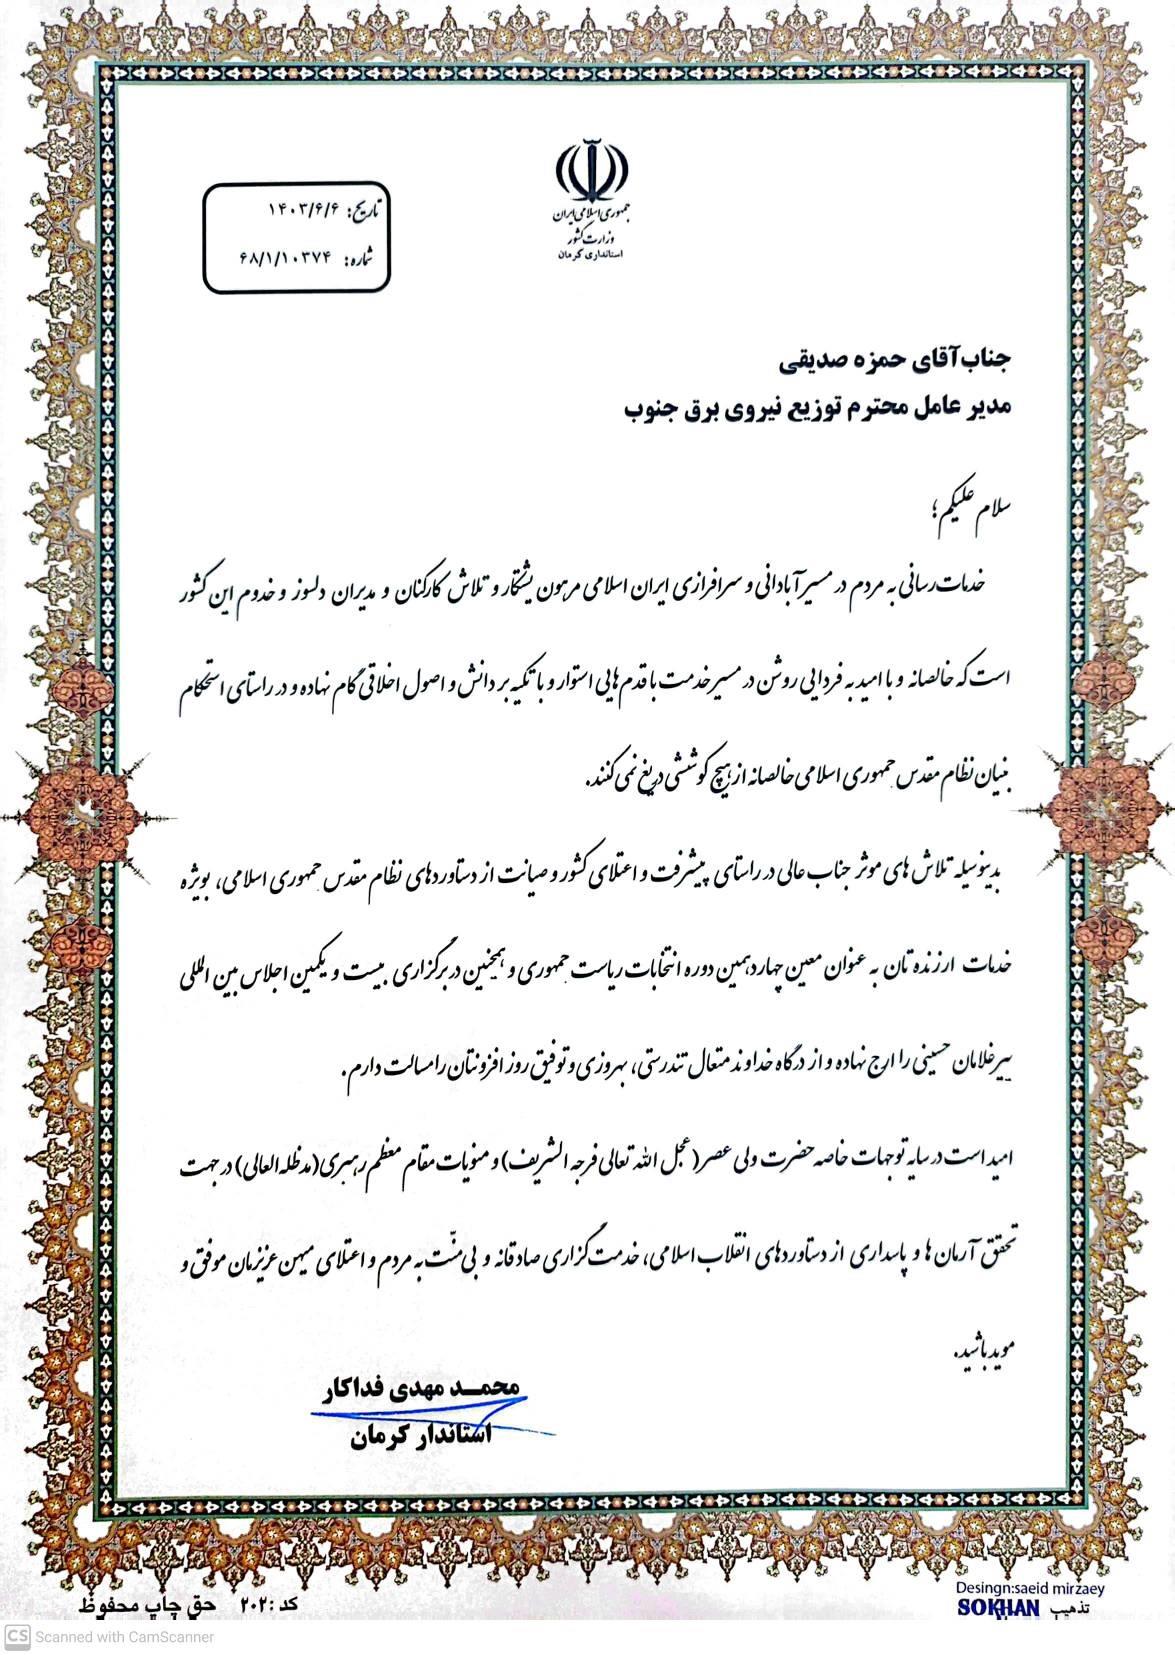 جمهوری اسلامی ایران
وزارت کشور
استانداری کرمان
تاریخ: ۱۴۰۳/۶/۶
شماره: ۶۸/۱/۱۰۳۷۴
جناب‌آقای حمزه صدیقی
مدیر عامل محترم توزیع نیروی برق جنوب
سلام علیکم؛
خدمات‌رسانی به مردم در مسیر آبادانی و سرافرازی ایران اسلامی مرهون پشتکار و تلاش کارکنان و مدیران دلسوز و خدوم این کشور
است که خالصانه و با امید به فردایی روشن در مسیر خدمت با قدم‌هایی استوار و با تکیه بر دانش و اصول اخلاقی گام نهاده و در راستای استحکام
بنیان نظام مقدس جمهوری اسلامی خالصانه از هیچ کوششی دریغ نمی‌کنند.
بدینوسیله تلاش های موثر جناب عالی در راستای پیشرفت و اعتلای کشور و صیانت از دستاوردهای نظام مقدس جمهوری اسلامی، بویژه
خدمات ارزنده تان به عنوان معین چهاردهمین دوره انتخابات ریاست جمهوری و همچنین در برگزاری بیست و یکمین اجلاس بین المللی
پیرغلامان حسینی را ارج نهاده و از درگاه خداوند متعال تندرستی، بهروزی و توفیق روز افزونتان را مسالت دارم.
امید است در سایه توجهات خاصه حضرت ولی عصر(عجل الله تعالی فرجه الشریف) و منویات مقام معظم رهبری(مدظله العالی) در جهت
تحقق آرمان ها و پاسداری از دستاوردهای انقلاب اسلامی، خدمت‌گزاری صادقانه و بی منّت به مردم و اعتلای میهن عزیزمان موفق و
موید باشید.
محمد مهدی فداکار
استاندار کرمان
Desingn:saeid mirzaey
تذهیب SOKHAN
کد :۲۰۲ حق چاپ محفوظ
CS Scanned with CamScanner